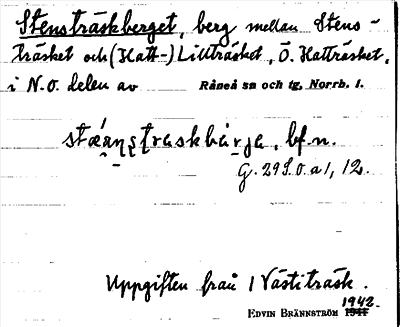 Stensträskberget, berg mellan Stens-
träsket och (Hatt-) Lillträsket, Ö. Hatträsket,
i N.O. delen av Råneå sn och tg, Norrb. l.
bf.n.
G. 29 S.O. a 1, 12.
Uppgiften från 1 Västiträsk.
EDVIN BRÄNNSTRÖM 1942.